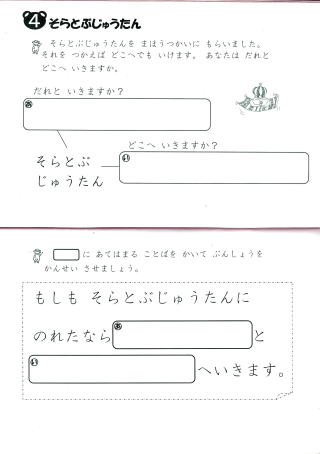 4 そらとぶじゅうたん
そらとぶじゅうたんを まほうつかいに もらいました。
それを つかえば どこへでも いけます。 あなたは だれと
どこへ いきますか。
だれと いきますか?
あ
どこへ いきますか?
い
そらとぶ
じゅうたん
に あてはまる ことばを かいて ぶんしょうを
かんせい させましょう。
もしも そらとぶじゅうたんに
のれたなら あ と
い へいきます。